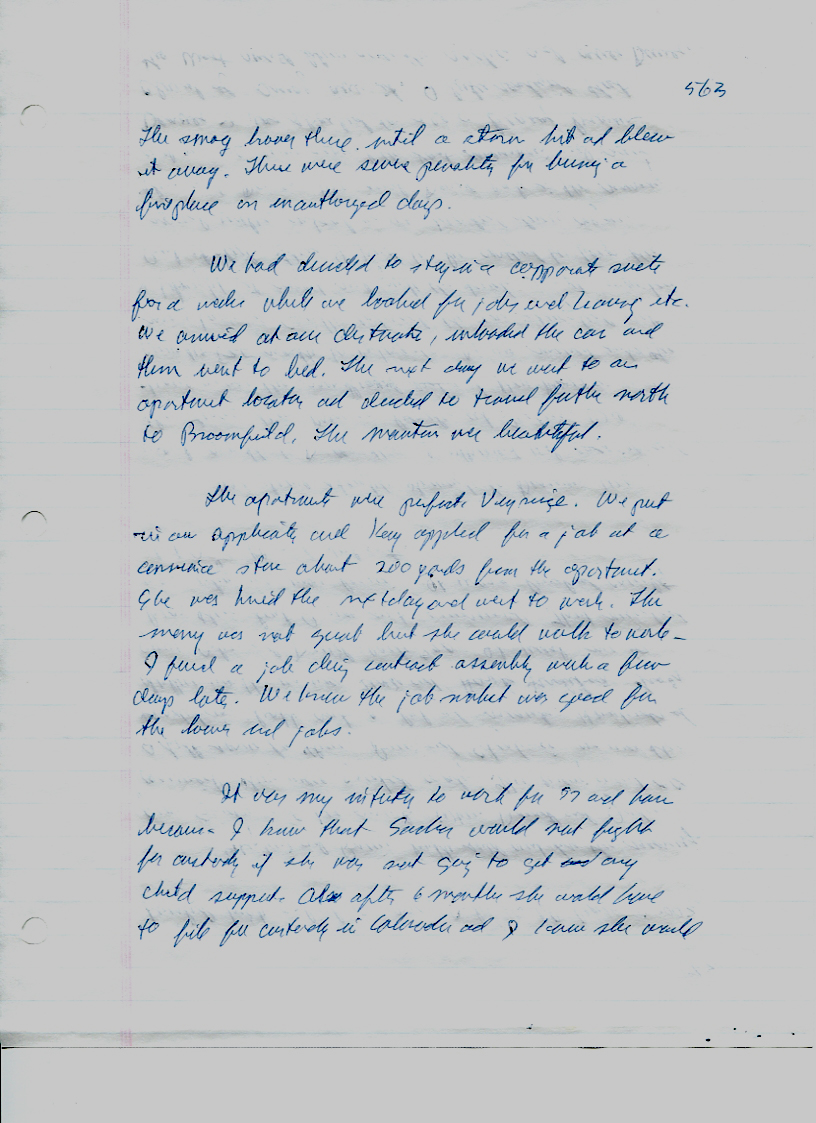 563
The smog hover there until a storm hit ad blew
it away. There were severe penality for burning a
fireplace on unauthorized days.
We had decided to stay in a corporate suite
for a weeks while we looked for jobs and housing etc.
We arrived at our destinate, unloaded the car and
then went to bed. The next day we went to an
apartment locator ad decided to travel further north
to Broomfield. The mountain were beautiful.
The apartments were perfect. Very nice. We put
in an applicatn and Kay applied for a job at a
convience store about 200 yards from the apartment.
She was hired the next day and went to work. The
money was not great but she could walk to work-
I found a job doing contract assembly work a few
days late. We knew the job market was good for
the lower end jobs.
It was my intention to work for an hour
because I knew that would not fight
for custody if she was not going to get any
child support. Also after 6 months she would have
to file for custody in Colorado ad I knew she would